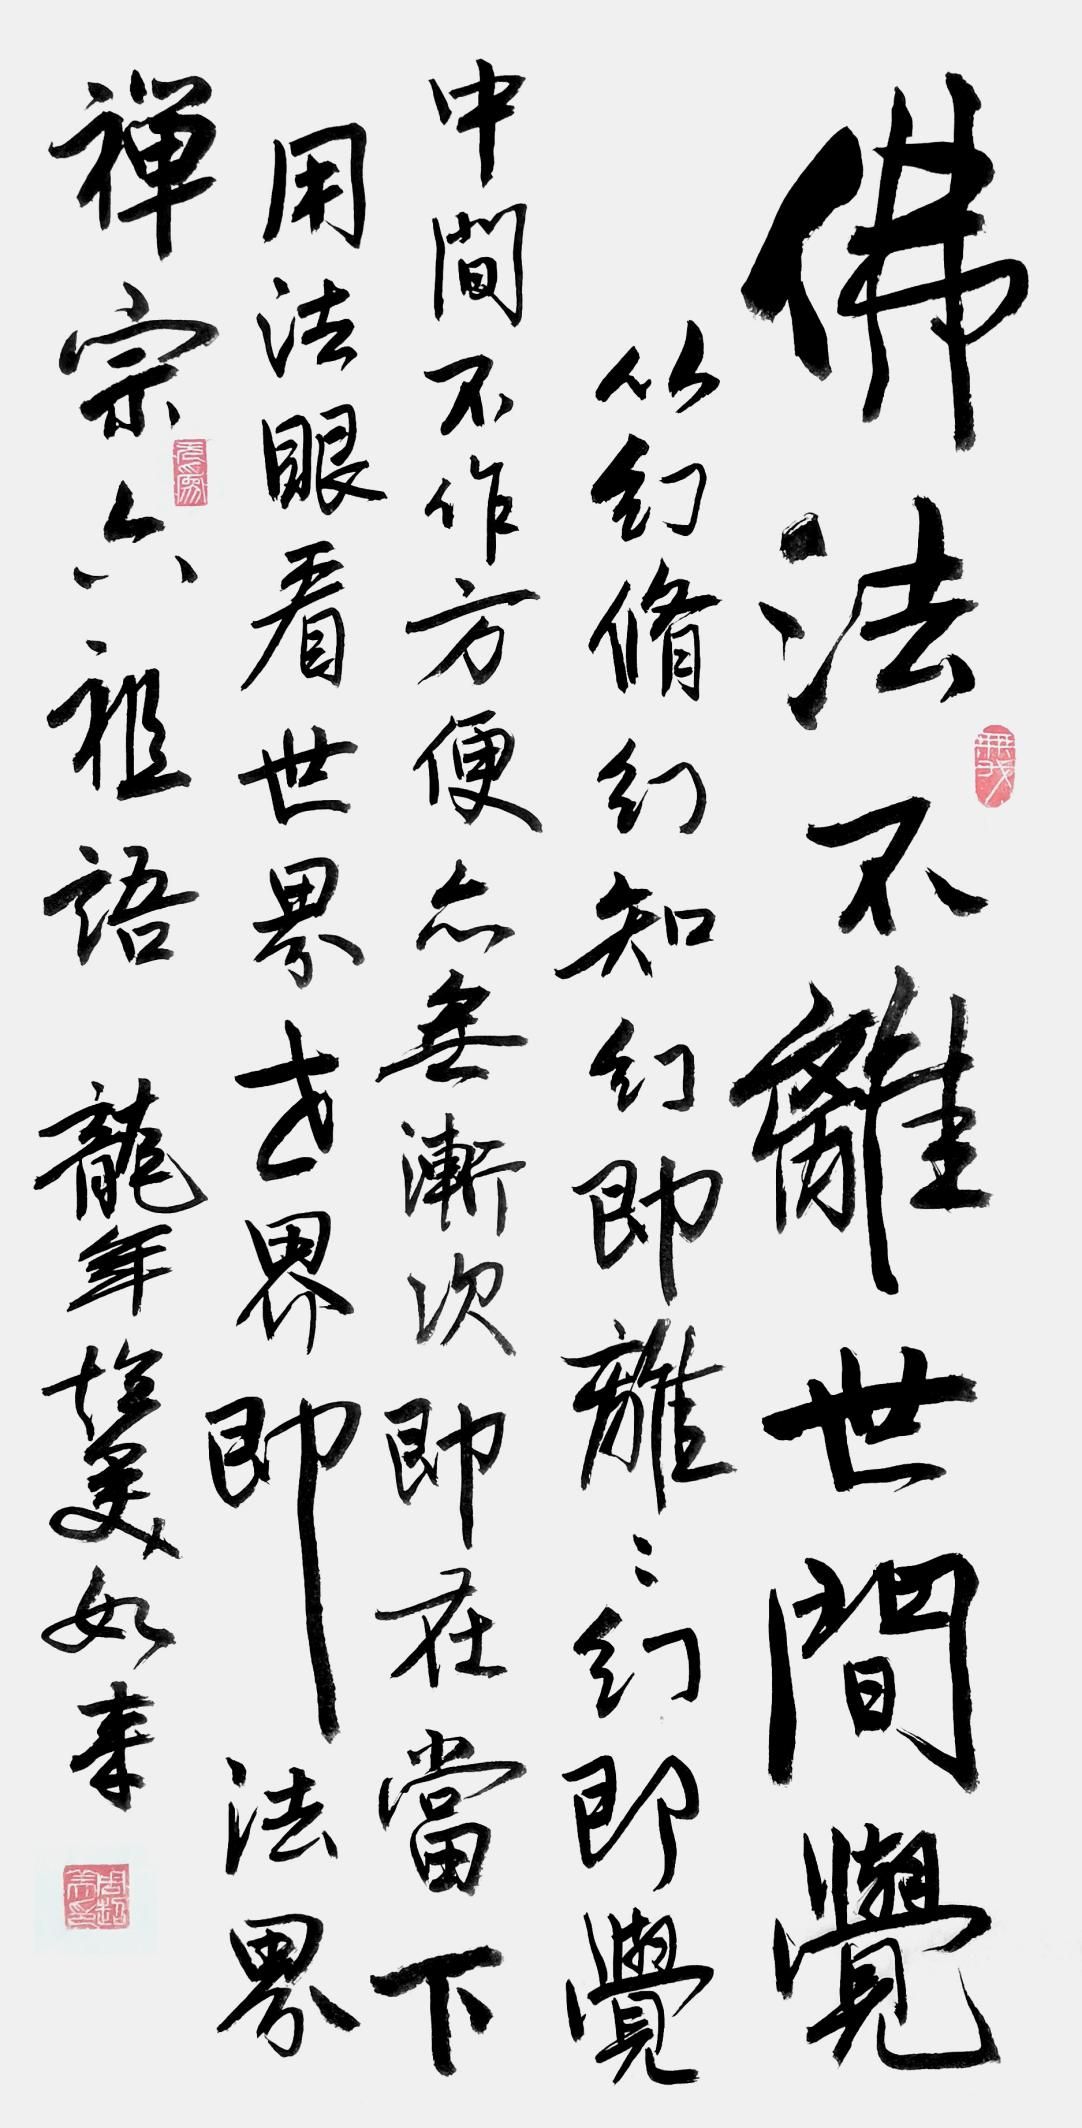 佛法不離世間覺
以幻脩幻知幻即離〻幻即覺
中間不作方便亦無漸次即在當下
用法眼看世界世界即法界
禪宗六祖語 龍年 美如来
無我